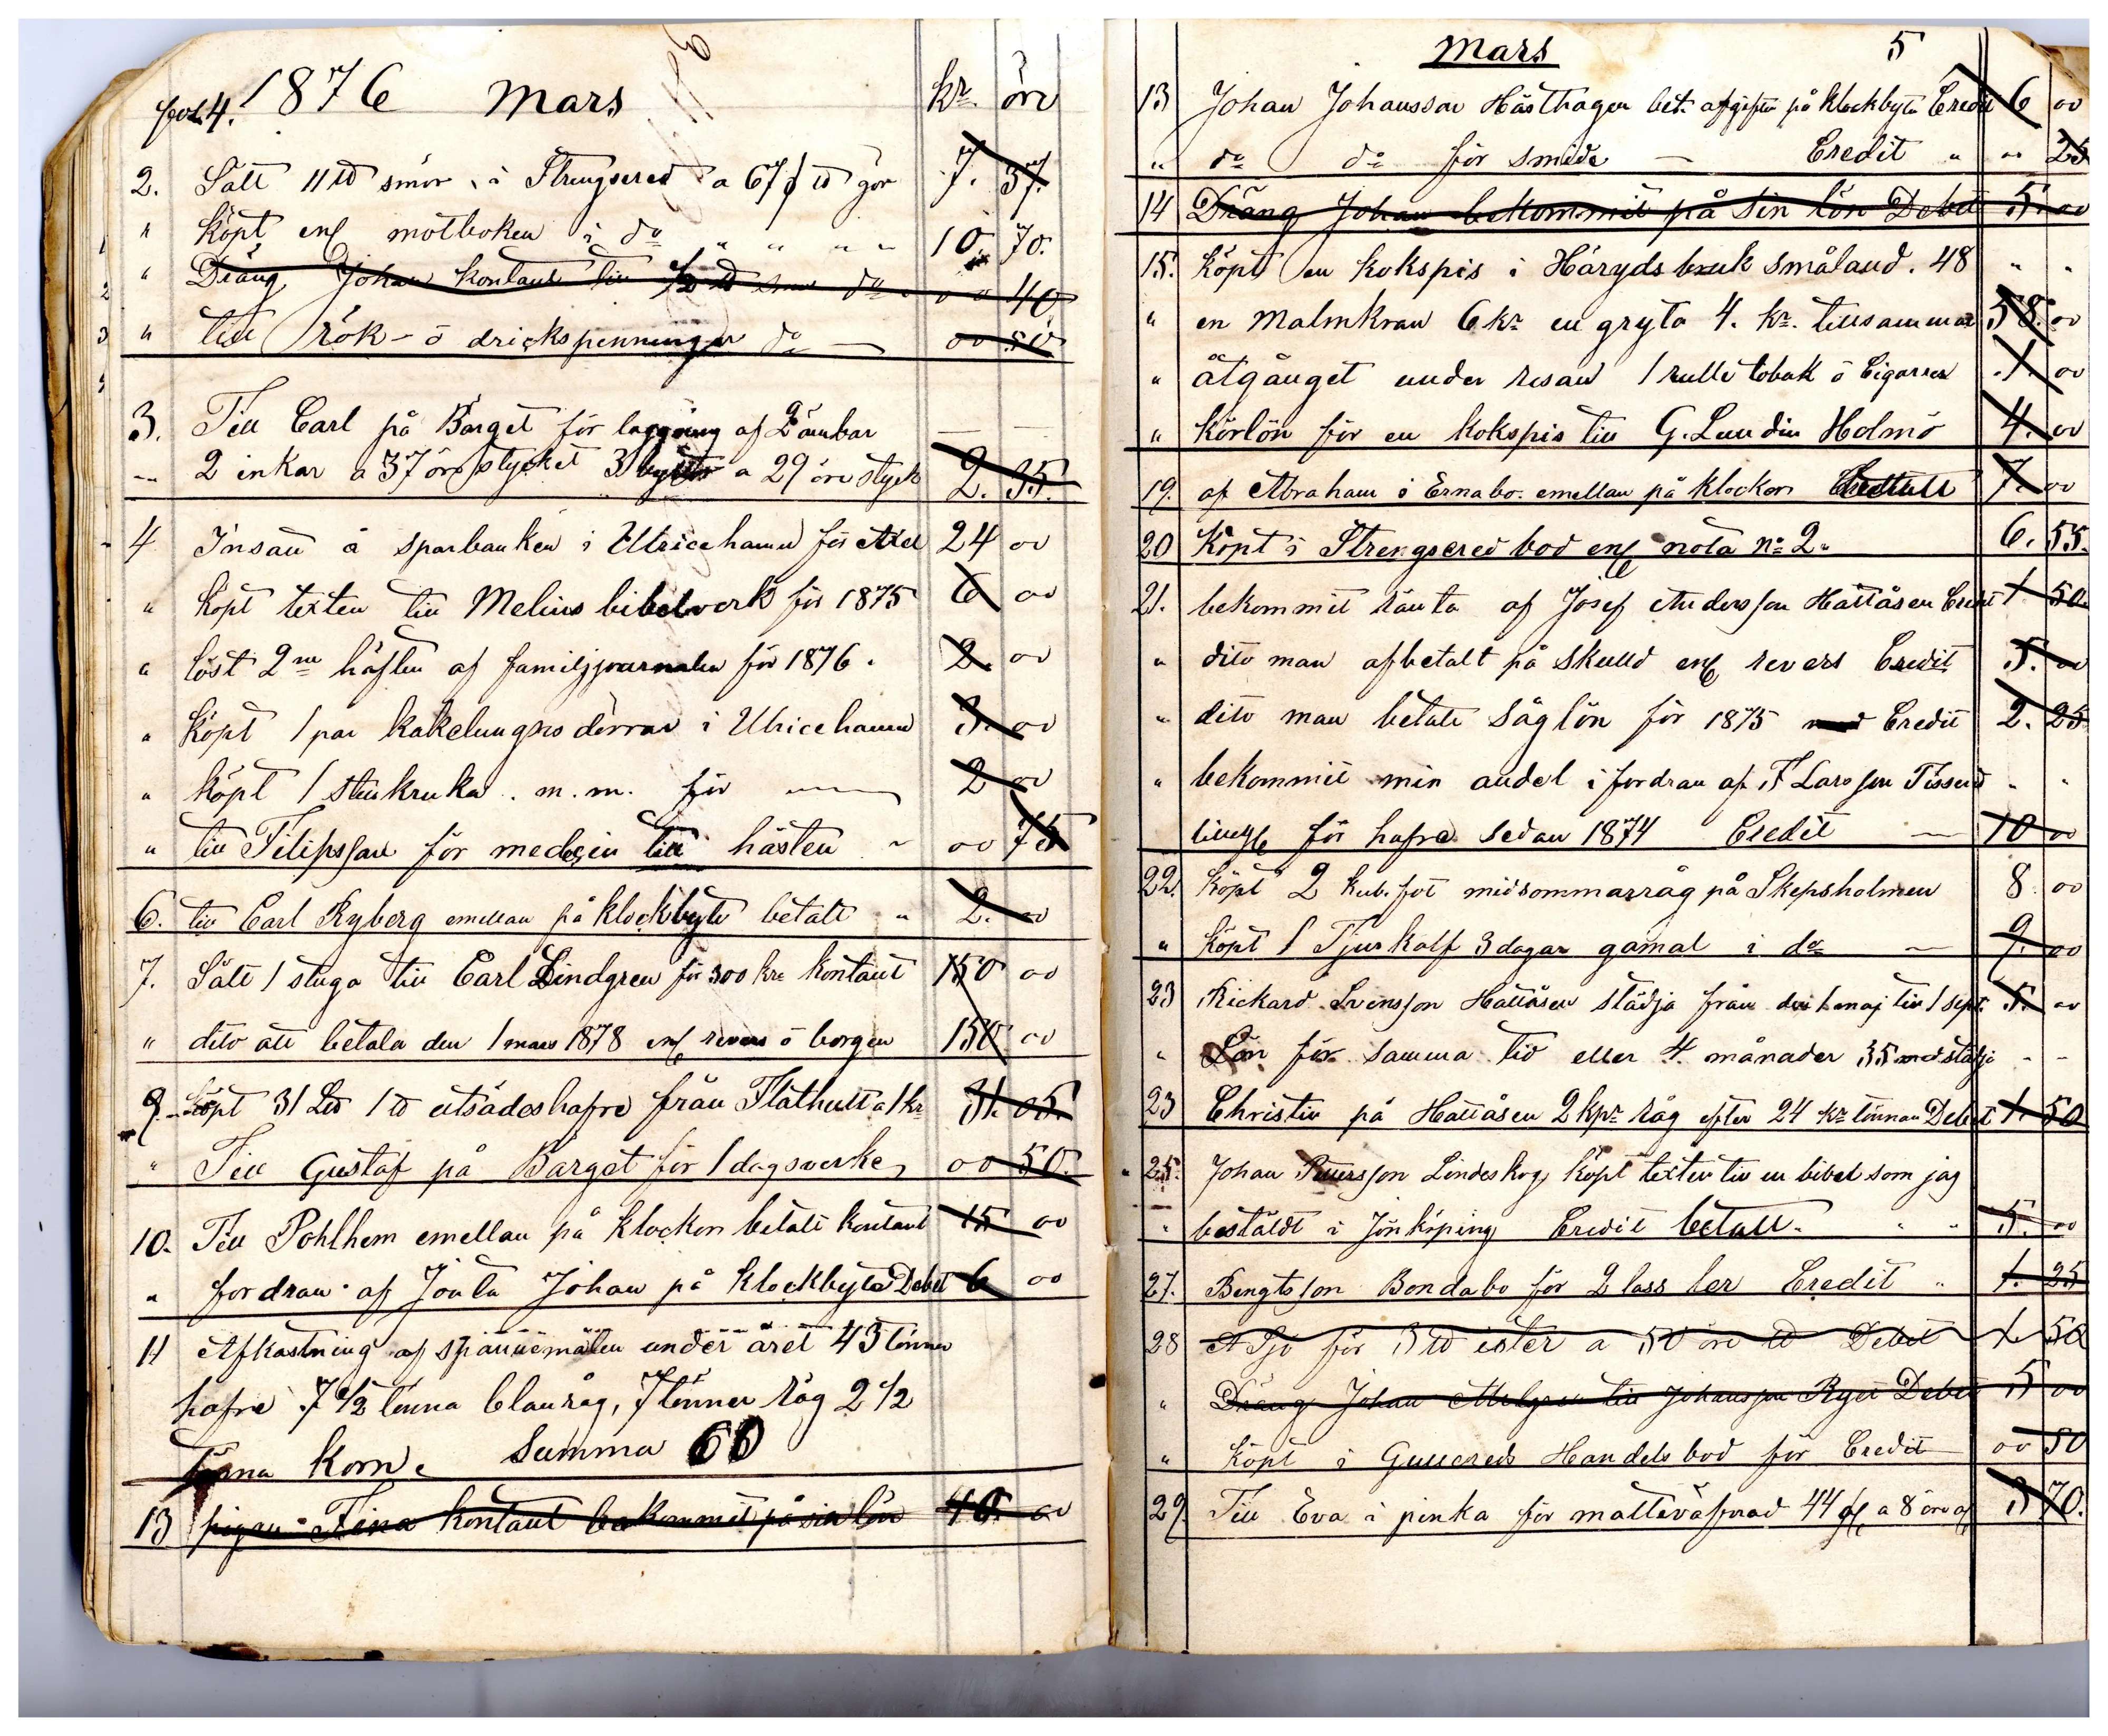 fol. 4. 1876 Mars kr. öre
2. Sålt 11 ℔ smör, i Strengsered a 67 ℔ gör 7. 37.
" köpt enl motboken i do " " " " 10. 70.
" Dräng Johan kontant till 1/2 ℔ do 00 40
" till rök- o drickspenningar do — 00 50
3. Till Carl på Barget för laggning af 2 ämbar — —
" 2 inkar a 37 öre stycket 3 byttor a 29 öre styck 2. 35.
4 Insatt å sparbanken i Ulricehamn för Axel 24 00
" köpt texten till Melins bibelverk för 1875 6 00
" löst 2ne häften af familjjournalen för 1876. 2. 00
" köpt 1 par kakelungns dörrar i Ulricehamn 3. 00
" köpt 1 stenkruka . m. m. för — 2 00
" till Filipsson för medecin till hästen " 00 75
6. till Carl Ryberg emellan på klockbyte betalt " 2. 00
7. Sålt 1 stuga till Carl Lindgren för 300 kr kontant 150 00
" dito att betala den 1 mars 1878 enl revers o borgen 150 00
9 köpt 31 L℔ 1 ℔ utsädeshafre från Flathult a 1 kr 31. 05.
" Till Gustaf på Barget för 1 dagsverke, 00 50.
10. Till Pohlhem emellan på klockor betalt kontant 15 00
" fordran af Jonta Johan på klockbyte Debet 6 00
11 Afkastning af spannemålen under året 43 tönner
hafre 7 1/2 tönna blanråg, 7 tönner råg 2 1/2
tönna korn. Summa 60
13 pigan Fina kontant bekommit på sin lön 40. 00
Mars 5
13 Johan Johansson Hästhagen bet. afgiften på klockbyte Credit 6 00
" do do för smide — Credit " " 25
14 Dräng Johan bekommit på sin lön Debet 5. 00
15. köpt en kokspis i Häryds bruk småland. 48 " "
" en Malmkran 6 kr en gryta 4. kr. tillsamman 58. 00
" åtgånget under resan 1 rulle tobak o Cigarrer 1. 00
" körlön för en kokspis till G. Lundin Holmö 4. 00
19. af Abraham i Ernabo. emellan på klockor 7. 00
20 Köpt i Strengsered bod enl nota No 2. 6. 55.
21. bekommit ränta af Josef Andersson Hattåsen Credit 1. 50.
" dito man afbetalt på skuld enl revers Credit 5. 00
" dito man betalt såglön för 1875 Credit 2. 25
" bekommit min andel i fordran af F Larsson " "
för hafre sedan 1874 Credit — 10 00
22. köpt 2 kub. fot midsommarråg på Skepsholmen 8. 00
" köpt 1 Tjurkalf 3 dagar gamal i do — 9. 00
23 Rickard Svensson Hattåsen städja från den 1 maj till 1 sept. 5. 00
" Lön för samma tid eller 4. månader 35 med städje - -
23 Christin på Hattåsen 2 kpr råg efter 24 kr tönnan Debet 1. 50
25. Johan Petersson Lindeskog, köpt texten till en bibel som jag
" bestäldt i Jönköping Credit betalt. " " 5. 00
27. Bengtsson Bondabo för 2 lass ler Credit " 1. 25
28 A Sjö för 3 ℔ ister a 50 öre ℔ Debet 1 50
" Dräng Johan till Johansson Ryet Debet 5 00
" köpt i Gullereds Handelsbod för Credit 00 50
29. Till Eva i pinka för mattväfnad 44 al a 8 öre al 3 70.